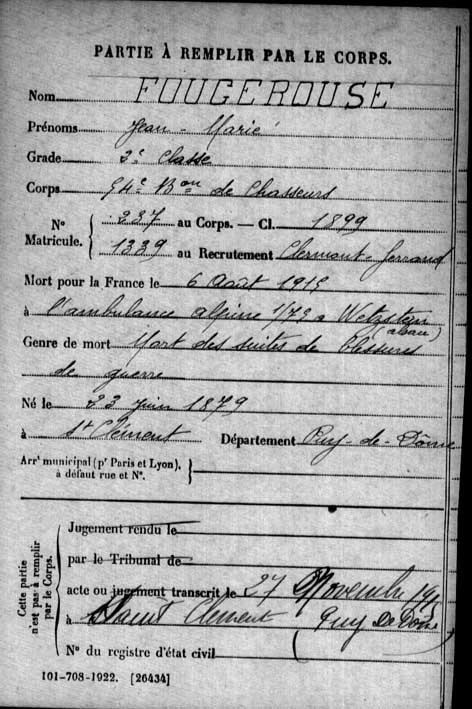 PARTIE À REMPLIR PAR LE CORPS.
Nom FOUGEROUSE
Prénoms Jean-Marie
Grade 2e Classe
Corps 54e Bon de Chasseurs
N° Matricule. { 237 au Corps. — Cl. 1899
1339 au Recrutement Clermont-Ferrand
Mort pour la France le 6 Août 1915
à l'ambulance alpine 1/73 a Wetzstein
(alsace)
Genre de mort Mort des suites de blessures
de guerre
Né le 23 juin 1879
à St Clément Département Puy-de-Dôme
Arrt municipal (pr Paris et Lyon), à défaut rue et N°. {
Cette partie n'est pas à remplir par le Corps.
Jugement rendu le
par le Tribunal de
acte ou jugement transcrit le 27 Novembre
à Saint Clément (Puy De Dôme)
N° du registre d'état civil
101-708-1922. [26434]